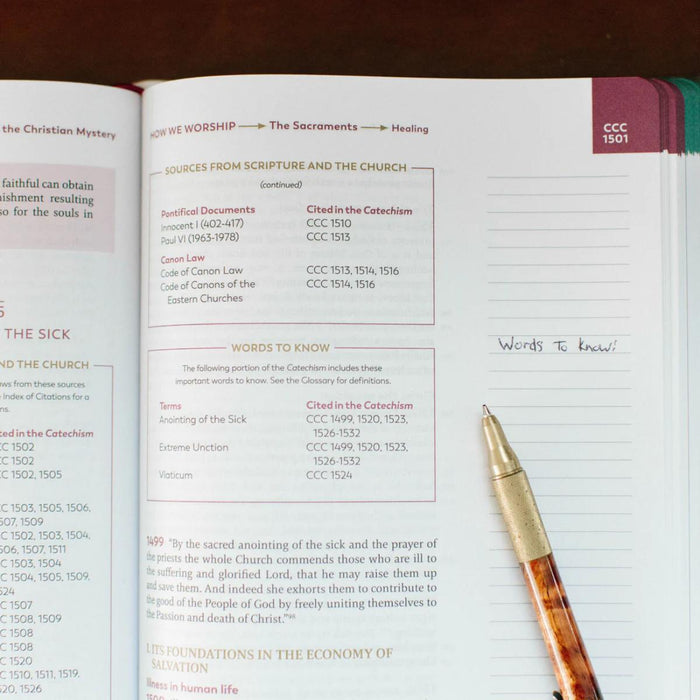 the Christian Mystery
faithful can obtain
nishment resulting
so for the souls in
5
THE SICK
ND THE CHURCH
ws from these sources
Index of Citations for a
ns.
ted in the Catechism
CC 1502
CC 1502
CC 1502, 1505
CC 1503, 1505, 1506,
507, 1509
CC 1502, 1503, 1504,
506, 1507, 1511
CC 1503, 1504
CC 1504, 1505, 1509,
524
CC 1507
CC 1508, 1509
CC 1508
CC 1508
CC 1520
CC 1510, 1511, 1519,
520, 1526
HOW WE WORSHIP → The Sacraments → Healing
CCC
1501
SOURCES FROM SCRIPTURE AND THE CHURCH
(continued)
Pontifical Documents Cited in the Catechism
Innocent I (402-417) CCC 1510
Paul VI (1963-1978) CCC 1513
Canon Law
Code of Canon Law CCC 1513, 1514, 1516
Code of Canons of the CCC 1514, 1516
Eastern Churches
WORDS TO KNOW
The following portion of the Catechism includes these
important words to know. See the Glossary for definitions.
Terms Cited in the Catechism
Anointing of the Sick CCC 1499, 1520, 1523,
1526-1532
Extreme Unction CCC 1499, 1520, 1523,
1526-1532
Viaticum CCC 1524
Words To Know!
1499 "By the sacred anointing of the sick and the prayer of
the priests the whole Church commends those who are ill to
the suffering and glorified Lord, that he may raise them up
and save them. And indeed she exhorts them to contribute to
the good of the People of God by freely uniting themselves to
the Passion and death of Christ."
I. ITS FOUNDATIONS IN THE ECONOMY OF
SALVATION
Illness in human life
1500